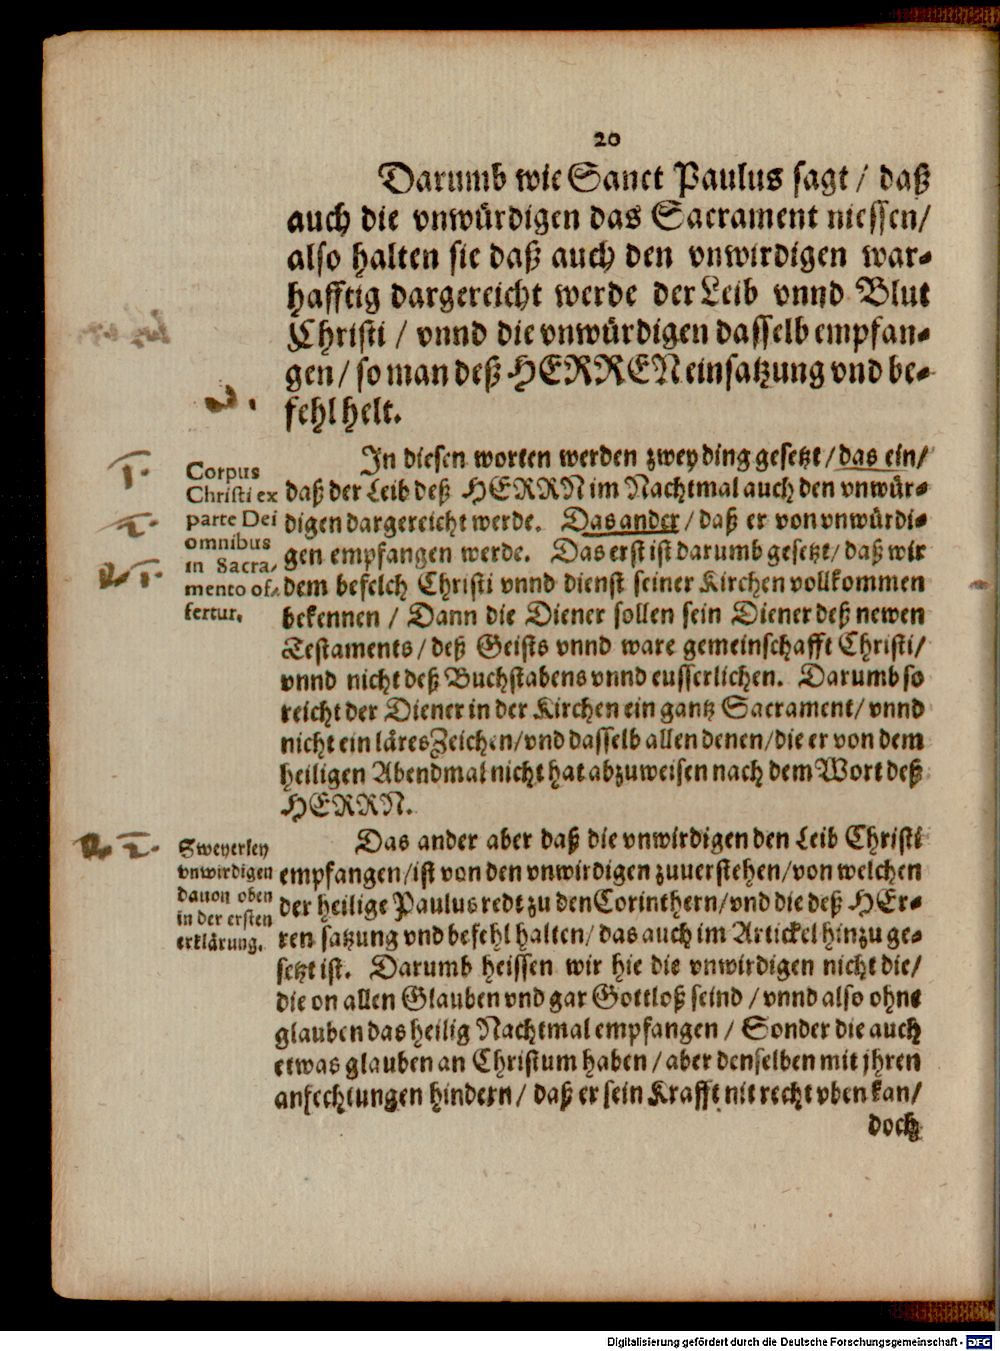 20
Darumb wie Sanct Paulus sagt / daß
auch die vnwürdigen das Sacrament niessen/
also halten sie daß auch den vnwirdigen war-
hafftig dargereicht werde der Leib vnnd Blut
Christi / vnnd die vnwürdigen dasselb empfan-
gen / so man deß HERREN einsatzung vnd be-
fehl helt.
3.
1.
2.
2. 1.
Corpus
Christi ex
parte Dei
omnibus
in Sacra-
mento of-
fertur.
In diesen worten werden zwey ding gesetzt / das ein/
daß der Leib deß HERRN im Nachtmal auch den vnwür-
digen dargereicht werde. Das ander / daß er von vnwürdi-
gen empfangen werde. Das erst ist darumb gesetzt / daß wir
dem befelch Christi vnnd dienst seiner Kirchen vollkommen
bekennen / Dann die Diener sollen sein Diener deß newen
Testaments / deß Geists vnnd ware gemeinschafft Christi/
vnnd nicht deß Buchstabens vnnd eusserlichen. Darumb so
reicht der Diener in der Kirchen ein gantz Sacrament / vnnd
nicht ein läres Zeichen / vnd dasselb allen denen / die er von dem
heiligen Abendmal nicht hat abzuweisen nach dem Wort deß
HERRN.
2.
Zweyerley
vnwirdigen
dauon oben
in der ersten
erklärung.
Das ander aber daß die vnwirdigen den Leib Christi
empfangen / ist von den vnwirdigen zuuerstehen / von welchen
der heilige Paulus redt zu den Corinthern / vnd die deß HEr-
ren satzung vnd befehl halten / das auch im Artickel hinzu ge-
setzt ist. Darumb heissen wir hie die vnwirdigen nicht die/
die on allen Glauben vnd gar Gottloß seind / vnnd also ohne
glauben das heilig Nachtmal empfangen / Sonder die auch
etwas glauben an Christum haben / aber denselben mit jhren
anfechtungen hindern / daß er sein Krafft nit recht vben kan/
doch
Digitalisierung gefördert durch die Deutsche Forschungsgemeinschaft - DFG